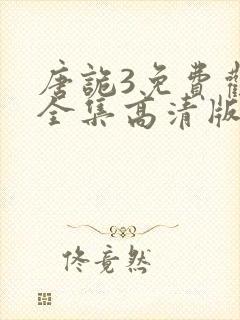 唐詭3免費
全集高清版
佟竟然